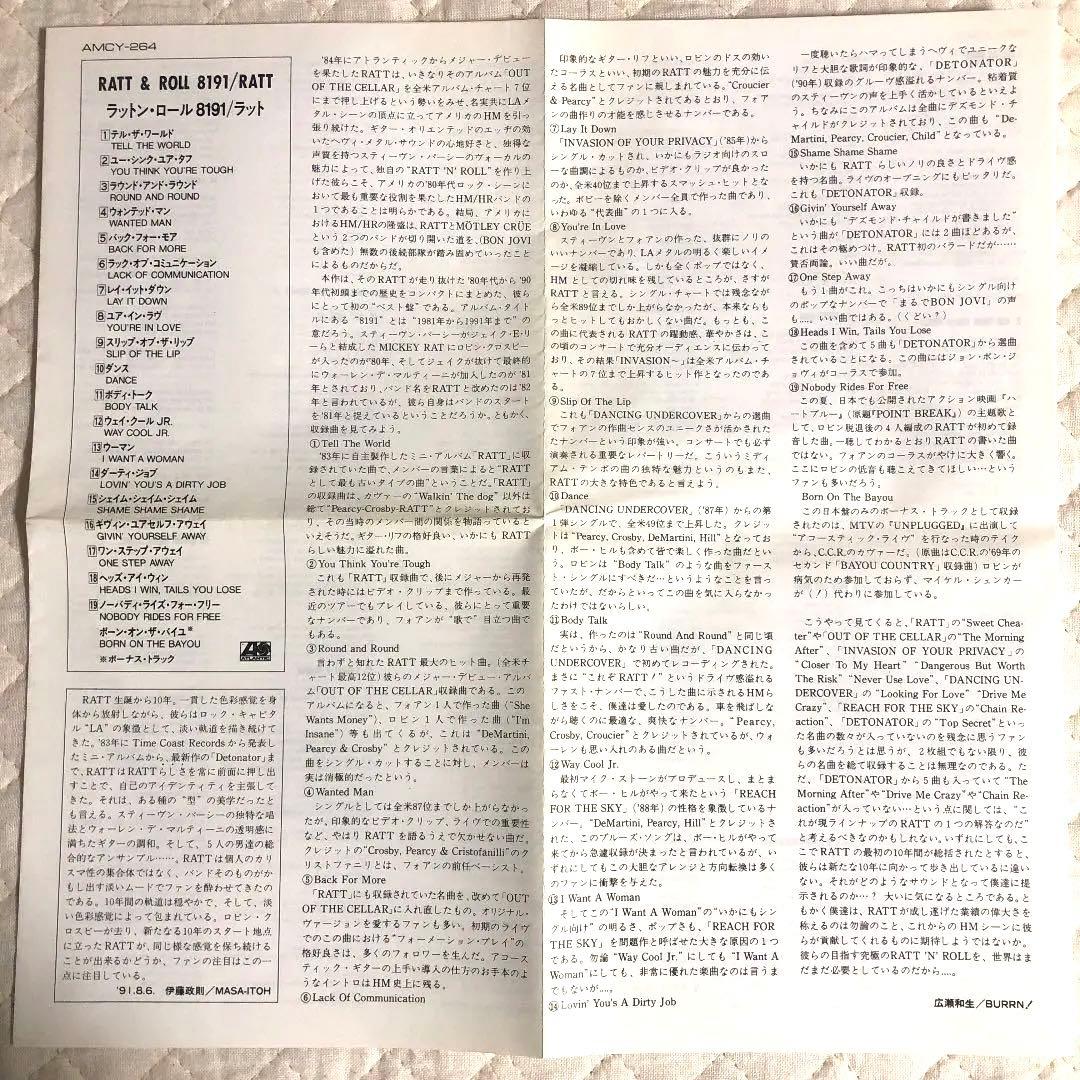 AMCY-264
RATT & ROLL 8191/RATT
ラットン・ロール8191/ラット
1テル・ザ・ワールド
TELL THE WORLD
2ユー・シンク・ユア・タフ
YOU THINK YOU'RE TOUGH
3ラウンド・アンド・ラウンド
ROUND AND ROUND
4ウォンテッド・マン
WANTED MAN
5バック・フォー・モア
BACK FOR MORE
6ラック・オブ・コミュニケーション
LACK OF COMMUNICATION
7レイ・イット・ダウン
LAY IT DOWN
8ユア・イン・ラヴ
YOU'RE IN LOVE
9スリップ・オブ・ザ・リップ
SLIP OF THE LIP
10ダンス
DANCE
11ボディ・トーク
BODY TALK
12ウェイ・クール JR.
WAY COOL JR.
13ウーマン
I WANT A WOMAN
14ダーティ・ジョブ
LOVIN' YOU'S A DIRTY JOB
15シェイム・シェイム・シェイム
SHAME SHAME SHAME
16ギヴィン・ユアセルフ・アウェイ
GIVIN' YOURSELF AWAY
17ワン・ステップ・アウェイ
ONE STEP AWAY
18ヘッズ・アイ・ウィン
HEADS I WIN, TAILS YOU LOSE
19ノーバディ・ライズ・フォー・フリー
NOBODY RIDES FOR FREE
ボーン・オン・ザ・バイユ*
BORN ON THE BAYOU
※ボーナス・トラック
ATLANTIC
RATT 生誕から10年。一貫した色彩感覚を身
体から放射しながら、彼らはロック・キャピタ
ル“LA”の象徴として、淡い軌道を描き続けて
きた。'83年に Time Coast Records から発表し
たミニ・アルバムから、最新作の「Detonator」ま
で、RATTはRATTらしさを常に前面に押し出
すことで、自己のアイデンティティを主張して
きた。それは、ある種の“型”の美学だったと
も言える。スティーヴン・パーシーの独特な唱
法とウォーレン・デ・マルティーニの透明感に
満ちたギターの調和。そして、5人の男達の総
合的なアンサンブル……。RATTは個人のカリ
スマ性の集合体ではなく、バンドそのものがか
もし出す淡いムードでファンを酔わせてきたの
である。10年間の軌道は穏やかで、そして、淡
い色彩感覚によって包まれている。ロビン・ク
ロスビーが去り、新たなる10年のスタート地点
に立ったRATTが、同じ様な感覚を保ち続ける
ことが出来るかどうか、ファンの注目はこの一
点に注目している。
'91.8.6. 伊藤政則/MASA-ITOH
'84年にアトランティックからメジャー・デビュー
を果たしたRATTは、いきなりそのアルバム「OUT
OF THE CELLAR」を全米アルバム・チャート7位
にまで押し上げるという勢いをみせ、名実共にLAメ
タル・シーンの頂点に立ってアメリカのHMを引っ
張り続けた。ギター・オリエンテッドのエッヂの効
いたヘヴィ・メタル・サウンドの心地好さと、独得な
声質を持つスティーヴン・パーシーのヴォーカルの
魅力によって、独自の“RATT 'N' ROLL”を作り上
げた彼らこそ、アメリカの'80年代ロック・シーンに
おいて最も重要な役割を果たしたHM/HRバンドの
1つであることは明らかである。結局、アメリカに
おけるHM/HRの隆盛は、RATTとMÖTLEY CRÜE
という2つのバンドが切り開いた道を、(BON JOVI
も含めた)無数の後続部隊が踏み固めていったこと
によるものだからだ。
本作は、そのRATTが走り抜けた'80年代から'90
年代初頭までの歴史をコンパクトにまとめた、彼ら
にとって初の“ベスト盤”である。アルバム・タイト
ルにある“8191”とは“1981年から1991年まで”の
意だろう――スティーヴン・パーシーがジェイク・E・リ
ーらと結成したMICKEY RATにロビン・クロスビー
が入ったのが'80年、そしてジェイクが抜けて最終的
にウォーレン・デ・マルティーニが加入したのが'81
年とされており、バンド名をRATTと改めたのは'82
年と言われているが、彼ら自身はバンドのスタート
を'81年と捉えているということだろうか。ともかく、
収録曲を見てみよう。
①Tell The World
'83年に自主製作したミニ・アルバム「RATT」に収
録されていた曲で、メンバーの言葉によると“RATT
として最も古いタイプの曲”ということだ。「RATT」
の収録曲は、カヴァーの“Walkin' The dog”以外は
総て“Pearcy-Crosby-RATT”とクレジットされてお
り、その当時のメンバー間の関係を物語っていると
いえそうだ。ギター・リフの格好良い、いかにも RATT
らしい魅力に溢れた曲。
②You Think You're Tough
これも「RATT」収録曲で、後にメジャーから再発
された時にはビデオ・クリップまで作っている。最
近のツアーでもプレイしている、彼らにとって重要
なナンバーであり、フォアンが“歌で”目立つ曲で
もある。
③Round and Round
言わずと知れた RATT 最大のヒット曲。(全米チ
ャート最高12位)彼らのメジャー・デビュー・アルバ
ム「OUT OF THE CELLAR」収録曲である。この
アルバムになると、フォアン1人で作った曲(“She
Wants Money”)、ロビン1人で作った曲(“I'm
Insane”)等も出てくるが、これは“DeMartini,
Pearcy & Crosby”とクレジットされている。この
曲をシングル・カットすることに対し、メンバーは
実は消極的だったという。
④Wanted Man
シングルとしては全米87位までしか上がらなかっ
たが、印象的なビデオ・クリップ、ライヴでの重要
性など、やはり RATT を語るうえで欠かせない曲だ。
クレジットの“Crosby, Pearcy & Cristofanilli”のク
リストファニリとは、フォアンの前任ベーシスト。
⑤Back For More
「RATT」にも収録されていた名曲を、改めて「OUT
OF THE CELLAR」に入れ直したもの。オリジナル・
ヴァージョンを愛するファンも多い。初期のライヴ
でのこの曲における“フォーメーション・プレイ”の
格好良さは、多くのフォロワーを生んだ。アコース
ティック・ギターの上手い導入の仕方のお手本のよ
うなイントロはHM史上に残る。
⑥Lack Of Communication
印象的なギター・リフといい、ロビンのドスの効い
たコーラスといい、初期のRATTの魅力を充分に伝
える名曲としてファンに親しまれている。“Croucier
& Pearcy”とクレジットされてあるとおり、フォア
ンの曲作りの才能を感じさせるナンバーである。
⑦Lay It Down
「INVASION OF YOUR PRIVACY」('85年)から
シングル・カットされ、いかにもラジオ向けのスロ
ーな曲調によるものか、ビデオ・クリップが良かった
のか、全米40位まで上昇するスマッシュ・ヒットとな
った。ボビーを除くメンバー全員で作った曲であり、
いわゆる“代表曲”の1つに入る。
⑧You're In Love
スティーヴンとフォアンの作った、抜群にノリの
いいナンバーであり、LAメタルの明るく楽しいイメー
ジを凝縮している。しかも全くポップではなく、
HMとしての切れ味を残しているところが、さすが
RATTと言える。シングル・チャートでは残念なが
ら全米89位までしか上がらなかったが、本来ならも
っとヒットしてもおかしくない曲だ。もっとも、こ
の曲に代表されるRATTの躍動感、華やかさは、こ
の頃のコンサートで充分オーディエンスに伝わって
おり、その結果「INVASION〜」は全米アルバム・チ
ャートの7位まで上昇するヒット作となったのであ
る。
⑨Slip Of The Lip
これも「DANCING UNDERCOVER」からの選曲
でフォアンの作曲センスのユニークさが活かされた
たナンバーという印象が強い。コンサートでも必ず
演奏される重要なレパートリーだ。こういうミディ
アム・テンポの曲の独特な魅力というのもまた、
RATTの大きな特色であると言えよう。
⑩Dance
「DANCING UNDERCOVER」('87年)からの第
1弾シングルで、全米49位まで上昇した。クレジッ
トは“Pearcy, Crosby, DeMartini, Hill”となってお
り、ボー・ヒルも含めて皆で楽しく作った曲だとい
う。ロビンは“Body Talk”のような曲をファース
ト・シングルにすべきだ…というようなことを言っ
ていたが、だからといってこの曲を気に入らなかっ
たわけではないらしい。
⑪Body Talk
実は、作ったのは“Round And Round”と同じ頃
だというから、かなり古い曲だが、「DANCING
UNDERCOVER」で初めてレコーディングされた。
まさに“これぞ RATT！”というドライヴ感溢れる
ファスト・ナンバーで、こうした曲に示されるHMら
しさをこそ、僕達は愛したのである。車を飛ばしな
がら聴くのに最適な、爽快なナンバー。“Pearcy,
Crosby, Croucier”とクレジットされているが、ウォ
ーレンも思い入れのある曲だという。
⑫Way Cool Jr.
最初マイク・ストーンがプロデュースし、まとま
らなくてボー・ヒルがやって来たという「REACH
FOR THE SKY」('88年)の性格を象徴しているナン
バー。“DeMartini, Pearcy, Hill”とクレジットされ
た、このブルース・ソングは、ボー・ヒルがやって
来てから急遽収録が決まったと言われているが、い
ずれにしてもこの大胆なアレンジと方向転換は多く
のファンに衝撃を与えた。
⑬I Want A Woman
そしてこの“I Want A Woman”の“いかにもシン
グル向け”の明るさ、ポップさも、「REACH FOR
THE SKY」を問題作と呼ばせた大きな原因の1つ
である。勿論“Way Cool Jr.”にしても“I Want A
Woman”にしても、非常に優れた楽曲なのは言うま
でもないが…。
⑭Lovin' You's A Dirty Job
一度聴いたらハマってしまうヘヴィでユニークな
リフと大胆な歌詞が印象的な、「DETONATOR」
('90年)収録のグルーヴ感溢れるナンバー。粘着質
のスティーヴンの声を上手く活かしているといえよ
う。ちなみにこのアルバムは全曲にデズモンド・チ
ャイルドがクレジットされており、この曲も“De-
Martini, Pearcy, Croucier, Child”となっている。
⑮Shame Shame Shame
いかにも RATT らしいノリの良さとドライヴ感
を持つ名曲。ライヴのオープニングにもピッタリだ。
これも「DETONATOR」収録。
⑯Givin' Yourself Away
いかにも“デズモンド・チャイルドが書きました”
という曲が「DETONATOR」には2曲ほどあるが、
これはその極めつけ。RATT初のバラードだが……
賛否両論。いい曲だが。
⑰One Step Away
もう1曲がこれ。こっちはいかにもシングル向け
のポップなナンバーで「まるでBON JOVI」の声
も…。いい曲ではある。(くどい？)
⑱Heads I Win, Tails You Lose
この曲を含めて5曲も「DETONATOR」から選曲
されていることになる。この曲にはジョン・ボン・ジ
ョヴィがコーラスで参加。
⑲Nobody Rides For Free
この夏、日本でも公開されたアクション映画『ハ
ートブルー』(原題『POINT BREAK』)の主題歌と
して、ロビン脱退後の4人編成のRATTが初めて録
音した曲。一聴してわかるとおりRATTの書いた曲
ではない。フォアンのコーラスがやけに大きく響く。
ここにロビンの低音も聴こえてきてほしい…という
ファンも多いだろう。
Born On The Bayou
この日本盤のみのボーナス・トラックとして収録
されたのは、MTVの『UNPLUGGED』に出演して
“アコースティック・ライヴ”を行なった時のテイク
から、C.C.R.のカヴァーだ。(原曲はC.C.R.の'69年の
セカンド「BAYOU COUNTRY」収録曲)ロビンが
病気のため参加しておらず、マイケル・シェンカー
が(！)代わりに参加している。
こうやって見てくると、「RATT」の“Sweet Chea-
ter”や「OUT OF THE CELLAR」の“The Morning
After”、「INVASION OF YOUR PRIVACY」の
“Closer To My Heart”“Dangerous But Worth
The Risk”“Never Use Love”、「DANCING UN-
DERCOVER」の“Looking For Love”“Drive Me
Crazy”、「REACH FOR THE SKY」の“Chain Re-
action”、「DETONATOR」の“Top Secret”といっ
た名曲の数々が入っていないのを残念に思うファン
も多いだろうとは思うが、2枚組でもない限り、彼
らの名曲を総て収録することは無理なのである。た
だ、「DETONATOR」から5曲も入っていて“The
Morning After”や“Drive Me Crazy”や“Chain Re-
action”が入っていない…という点に関しては、“こ
れが現ラインナップのRATTの1つの解答なのだ”
と考えるべきなのかもしれない。いずれにしても、こ
こでRATTの最初の10年間が総括されたとすると、
彼らは新たな10年に向かって歩き出しているに違い
ない。それがどのようなサウンドとなって僕達に提
示されるのか…？ 大いに気になるところである。と
もかく僕達は、RATTが成し遂げた業績の偉大さを
称えるのは勿論のこと、これからのHMシーンに彼
らが貢献してくれるものに期待しようではないか。
彼らの目指す究極のRATT 'N' ROLLを、世界はま
だまだ必要としているのだから…。
広瀬和生/BURRN！